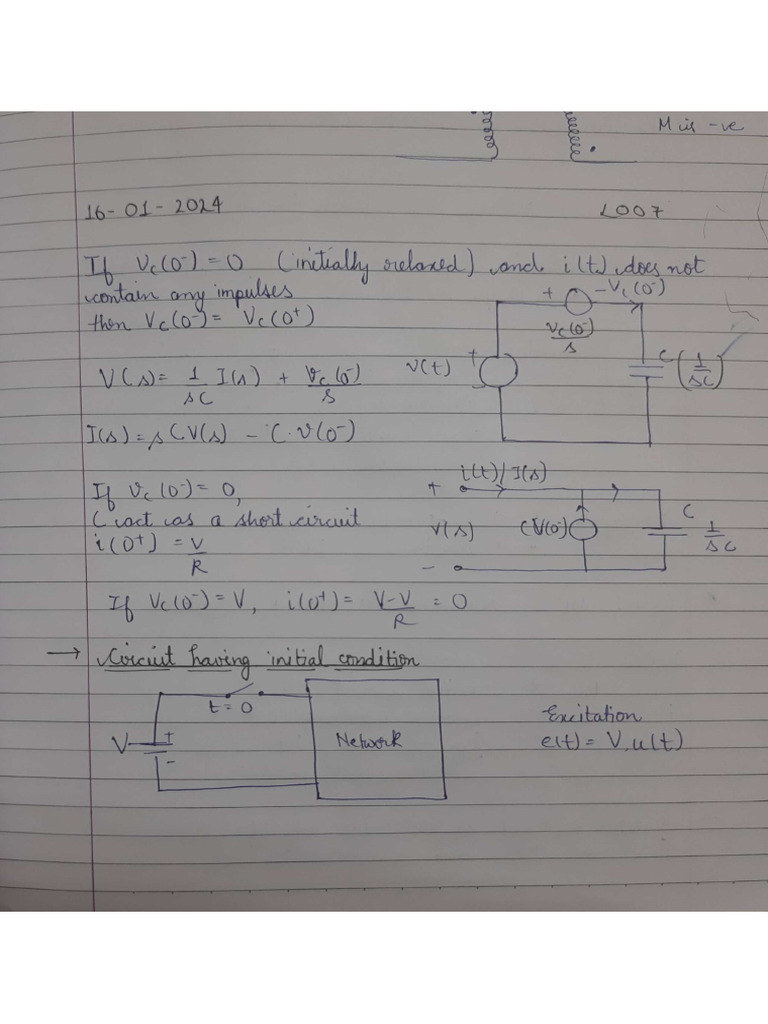 M is -ve
16-01-2024 L007
If Vc(0⁻) = 0 (initially relaxed) and i(t) does not
contain any impulses
then Vc(0⁻) = Vc(0⁺)
+ - Vc(0⁻)
vc(0⁻)/s
v(t) +
C (1/sC)
V(s) = 1/sC I(s) + vc(0⁻)/s
I(s) = sCV(s) - C.v(0⁻)
If vc(0⁻) = 0,
C act as a short circuit
i(0⁺) = V/R
i(t)/I(s)
+
V(s) CV(0⁻) C 1/sC
-
If Vc(0⁻) = V, i(0⁺) = V-V/R = 0
→ Circuit having initial condition
t = 0
V + -
Network
Excitation
e(t) = V.u(t)